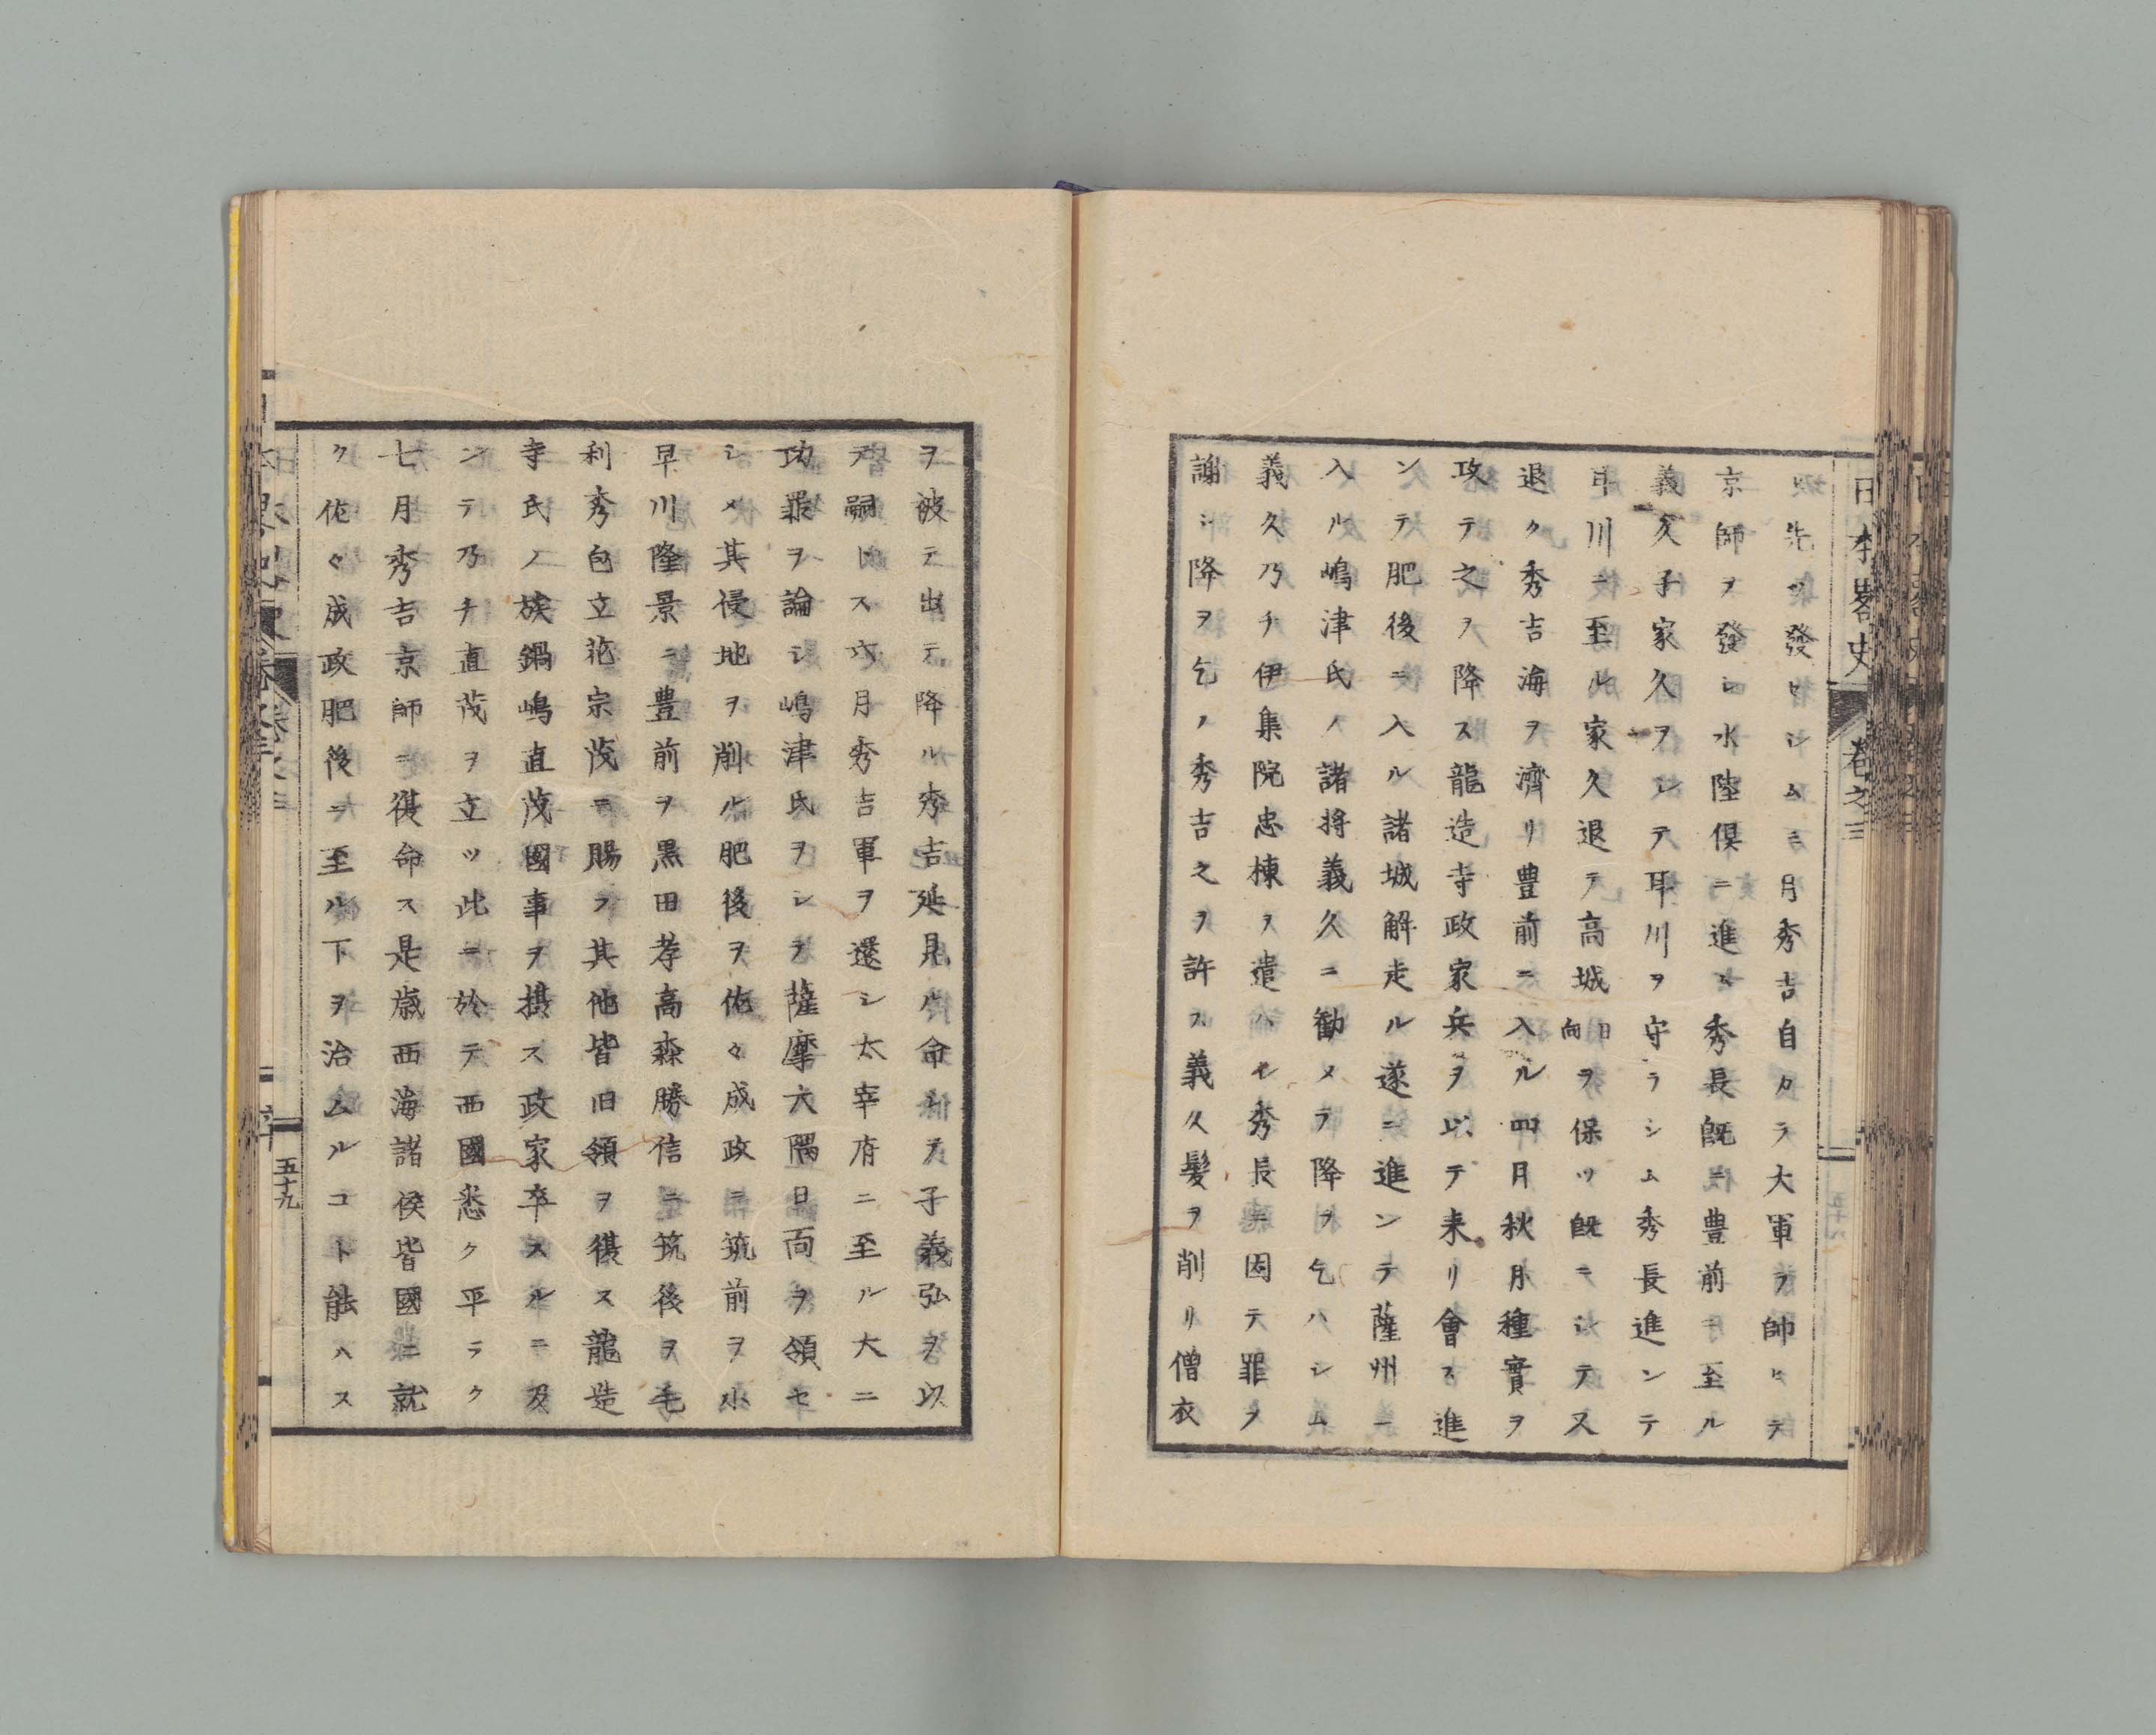 日本畧史 卷之三
先ツ發セシム三月秀吉自カラ大軍ヲ師ヒテ
京師ヲ發シ水陸倶ニ進ム秀長既ニ豊前ニ至ル
義久子家久ヲシテ耳川ヲ守ラシム秀長進ンテ
耳川ニ至ル家久退テ高城日向ヲ保ツ既ニシテ又
退ク秀吉海ヲ濟リ豊前ニ入ル四月秋月種實ヲ
攻テ之ヲ降ス龍造寺政家兵ヲ以テ来リ會ス進
ンテ肥後ニ入ル諸城解走ル遂ニ進ンテ薩州ニ
入ル嶋津氏ノ諸将義久ニ勧メテ降ヲ乞ハシム
義久乃チ伊集院忠棟ヲ遣ハセ秀長ニ因テ罪ヲ
謝シ降ヲ乞ノ秀吉之ヲ許ス義久髪ヲ削リ僧衣
ヲ被テ出テ降ル秀吉延見ル命シテ子義弘ヲ以
テ嗣トス六月秀吉軍ヲ還シ太宰府ニ至ル大ニ
功罪ヲ論シ嶋津氏ヲシテ薩摩大隅日向ヲ領セ
シメ其侵地ヲ削ル肥後ヲ佐々成政ニ筑前ヲ小
早川隆景ニ豊前ヲ黒田孝高森勝信ニ筑後ヲ毛
利秀包立花宗茂ニ賜ヲ其他皆旧領ヲ復ス龍造
寺氏ノ族鍋嶋直茂國事ヲ摂ス政家卒スルニ及
ンテ乃チ直茂ヲ立ツ此ニ於テ西國悉ク平ラク
七月秀吉京師ニ復命ス是歳西海諸侯皆國ニ就
ク佐々成政肥後ニ至ル下ヲ治ムルコト能ハス
卷之三
五十九